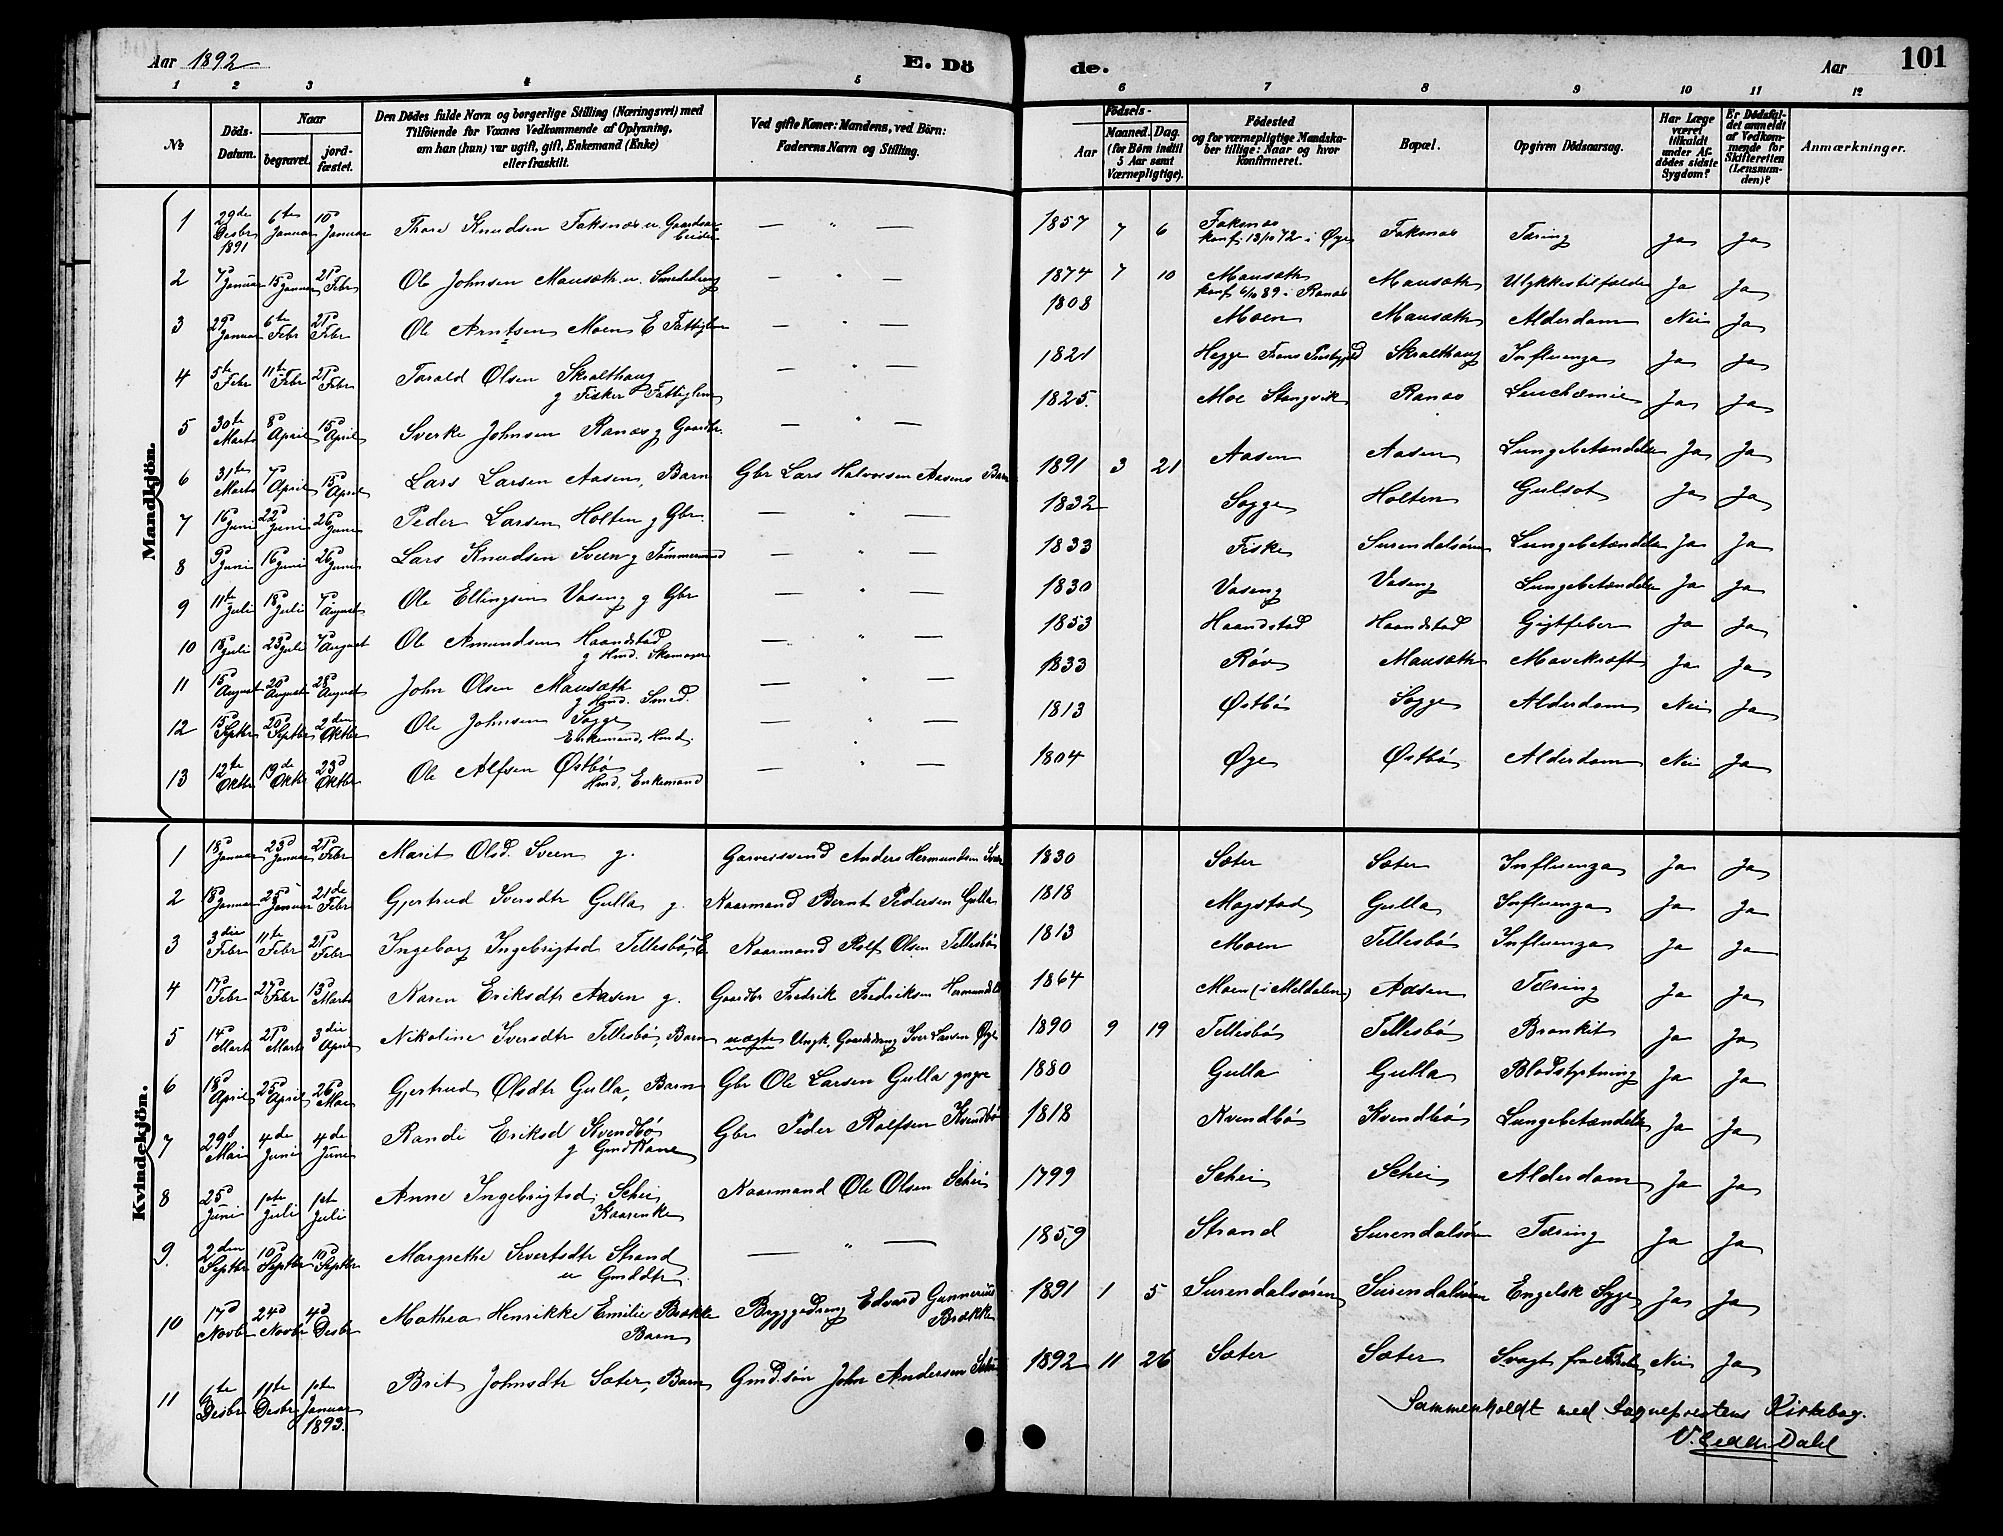 Aar 1892 E. Dö de. Aar 101
1 2 3 4 5 6 7 8 9 10 11 12
No Döds-Datum. Naar begravet. jordfæstet. Den Dödes fulde Navn og borgerlige Stilling (Næringsvei) med Tilföiende for Voxnes Vedkommende af Oplysning, om han (hun) var ugift, gift, Enkemand (Enke) eller fraskilt. Ved gifte Koner: Mandens, ved Börn: Faderens Navn og Stilling. Födsels- Aar Maaned. Dag. (for Börn indtil 5 Aar samt Værnepligtige). Födested og for værnepligtige Mandskaber tillige: Naar og hvor Konfirmeret. Bopæl. Opgiven Dödsaarsag. Har Læge været tilkaldt under Afdödes sidste Sygdom? Er Dödsfaldet anmeldt af Vedkommende for Skifteretten (Lensmanden)? Anmærkninger.
Mandkjön.
1 29de Desbr 1891 6te Januar 10d Januar Thore Knudsen Foksnæs u. Gaardsarbeider — " — 1857 7 6 Foksnæs konf. 13/10 72 i Øye Foksnæs Tæring Ja Ja
2 7d Januar 15d Januar 21d Febr Ole Johnsen Mausæth u. Smededreng — " — 1874 7 10 Mausæth konf 6/10 89 i Ranæs Mausæth Ulykkestilfælde Ja Ja
3 29d Januar 6te Febr 21d Febr Ole Arntsen Moen E Fattiglem — " — 1808 Moen Mausæth Alderdom Nei Ja
4 5te Febr 11te Febr 21d Febr Torald Olsen Skralthaug g Fisker Fattiglem — " — 1821 Hegge Skralthaug Influenza Ja Ja
5 30te Marts 8d April 15d April Sverke Johnsen Ranæs g Gaardbr. — " — 1825. Moe Stangvik Ranæs Leuchæmie Ja Ja
6 31te Marts 7d April 15d April Lars Larsen Aasen, Barn Gbr Lars Halvorsen Aasens Barn 1891 3 21 Aasen Aasen Lungebetændelse Ja Ja
7 16d Juni 22d Juni 26d Juni Peder Larsen Holten g Gbr. — " — 1832 Sogge Holten Gulsot Ja Ja
8 9d Juni 16d Juni 26d Juni Lars Knudsen Sveen g Tömmermand — " — 1833 Fiske Surendalsören Lungebetændelse Ja Ja
9 11te Juli 18d Juli 7d August Ole Ellingsen Vaseng g Gbr — " — 1830 Vaseng Vaseng Lungebetændelse Ja Ja
10 18d Juli 23d Juli 7d August Ole Amundsen Haandstad g Hmd. Skomager — " — 1853 Haandstad Haandstad Gigtfeber Ja Ja
11 15d August 20d August 28d August John Olsen Mausæth g Hmd. Smed. — " — 1833 Röv Mausæth Mavekræft Ja Ja
12 15d Septbr 20d Septbr 2den Oktbr Ole Johnsen Sogge Enkemand, Hmd. — " — 1813 Østbö Sogge Alderdom Nei Ja
13 12te Oktbr 19de Oktbr 23d Oktbr Ole Alfsen Østbö Hmd, Enkemand — " — 1804 Øye Østbö Alderdom Nei Ja
Kvindekjön.
1 18d Januar 23d Januar 21d Febr Marit Olsd. Sveen g. Garversvend Anders Hermundsen Sveen 1830 Sæter Sæter Influenza Ja Ja
2 18d Januar 25d Januar 21de Febr Gjertrud Iversdtr Gulla g. Kaarmand Bernt Pedersen Gulla 1818 Mogstad Gulla Influenza Ja Ja
3 3die Febr 11te Febr 21d Febr Ingeborg Ingebrigtsd Tellesbö, E Kaarmand Rolf Olsen Tellesbö 1813 Moen Tellesbö Influenza Ja Ja
4 17d Febr 27d Febr 13d Marts Karen Eriksdtr Aasen g. Gaardbr Fredrik Fredriksen 1864 Moen (i Meldalen) Aasen Tæring Ja Ja
5 14d Marts 21d Marts 3die April Nikoline Iversdtr Tellesbö, Barn uægte Ungk. Gaarddreng Iver Larsen Øye 1890 9 19 Tellesbö Tellesbö Bronkit Ja Ja
6 18d April 25d April 26d Mai Gjertrud Olsdtr Gulla, Barn Gbr Ole Larsen Gulla yngre 1880 Gulla Gulla Blodstyrtning Ja Ja
7 29d Mai 4de Juni 4de Juni Randi Eriksd Kvendbö g Gmdkone Gbr Peder Rolfsen Kvendbö 1818 Kvendbö Kvendbö Lungebetændelse Ja Ja
8 25d Juni 1ste Juli 1ste Juli Anne Ingebrigtsd. Schei Kaarenke Kaarmand Ole Olsen Schei 1799 Schei Schei Alderdom Ja Ja
9. 2den Septbr 10d Septbr 10d Septbr Margrethe Sivertsdtr Strand u Gmddtr — " — 1859 Strand Surendalsören Tæring Ja Ja
10 17d Novbr 24d Novbr 4d Desbr Mathea Henrikke Emilie Brække Barn Bryggedreng Edvard Gunnerius Brække 1891 1 5 Surendalsören Surendalsören Engelsk Syge Ja Ja
11 6te Desbr 11te Desbr 1ste Januar 1893. Brit Johnsdtr Sæter, Barn Gmd.sön John Andersen Sæter 1892 11 26 Sæter Sæter Svagt fra Födsel Nei Ja
Sammenholdt med Sogneprestens Kirkebog.
Dahl